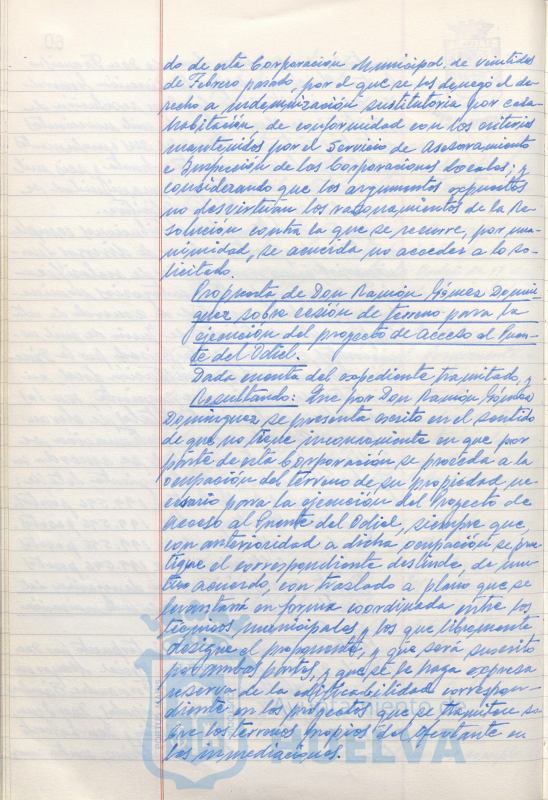 do de esta Corporación Municipal, de veintidos
de Febrero pasado, por el que se les denegó el de-
recho a indemnización sustitutoria por casa
habitación, de conformidad con los criterios
mantenidos por el Servicio de Asesoramiento
e Inspección de las Corporaciones Locales; y
considerando que los argumentos expuestos
no desvirtuan los razonamientos de la Re-
solución contra la que se recurre, por una-
nimidad, se acuerda no acceder a lo so-
licitado.
Propuesta de Don Ramón Gómez Domin-
guez sobre cesión de terreno para la
ejecución del proyecto de acceso al Puen-
te del Odiel.
Dada cuenta del expediente tramitado, y
Resultando: Que por Don Ramón Gómez
Dominguez se presenta escrito en el sentido
de que no tiene inconveniente en que por
parte de esta Corporación se proceda a la
ocupación del terreno de su propiedad ne-
cesario para la ejecución del Proyecto de
acceso al Puente del Odiel, siempre que,
con anterioridad a dicha ocupación se prac-
tique el correspondiente deslinde, de mu-
tuo acuerdo, con traslado a plano que se
levantará en forma coordinada entre los
técnicos municipales y los que libremente
designe el proponente, y que será suscrito
por ambas partes, y que se le haga expresa
reserva de la edificabilidad correspon-
diente en los proyectos que se tramiten so-
bre los terrenos propios del oferente en
las inmediaciones.
Ayuntamiento de
HUELVA